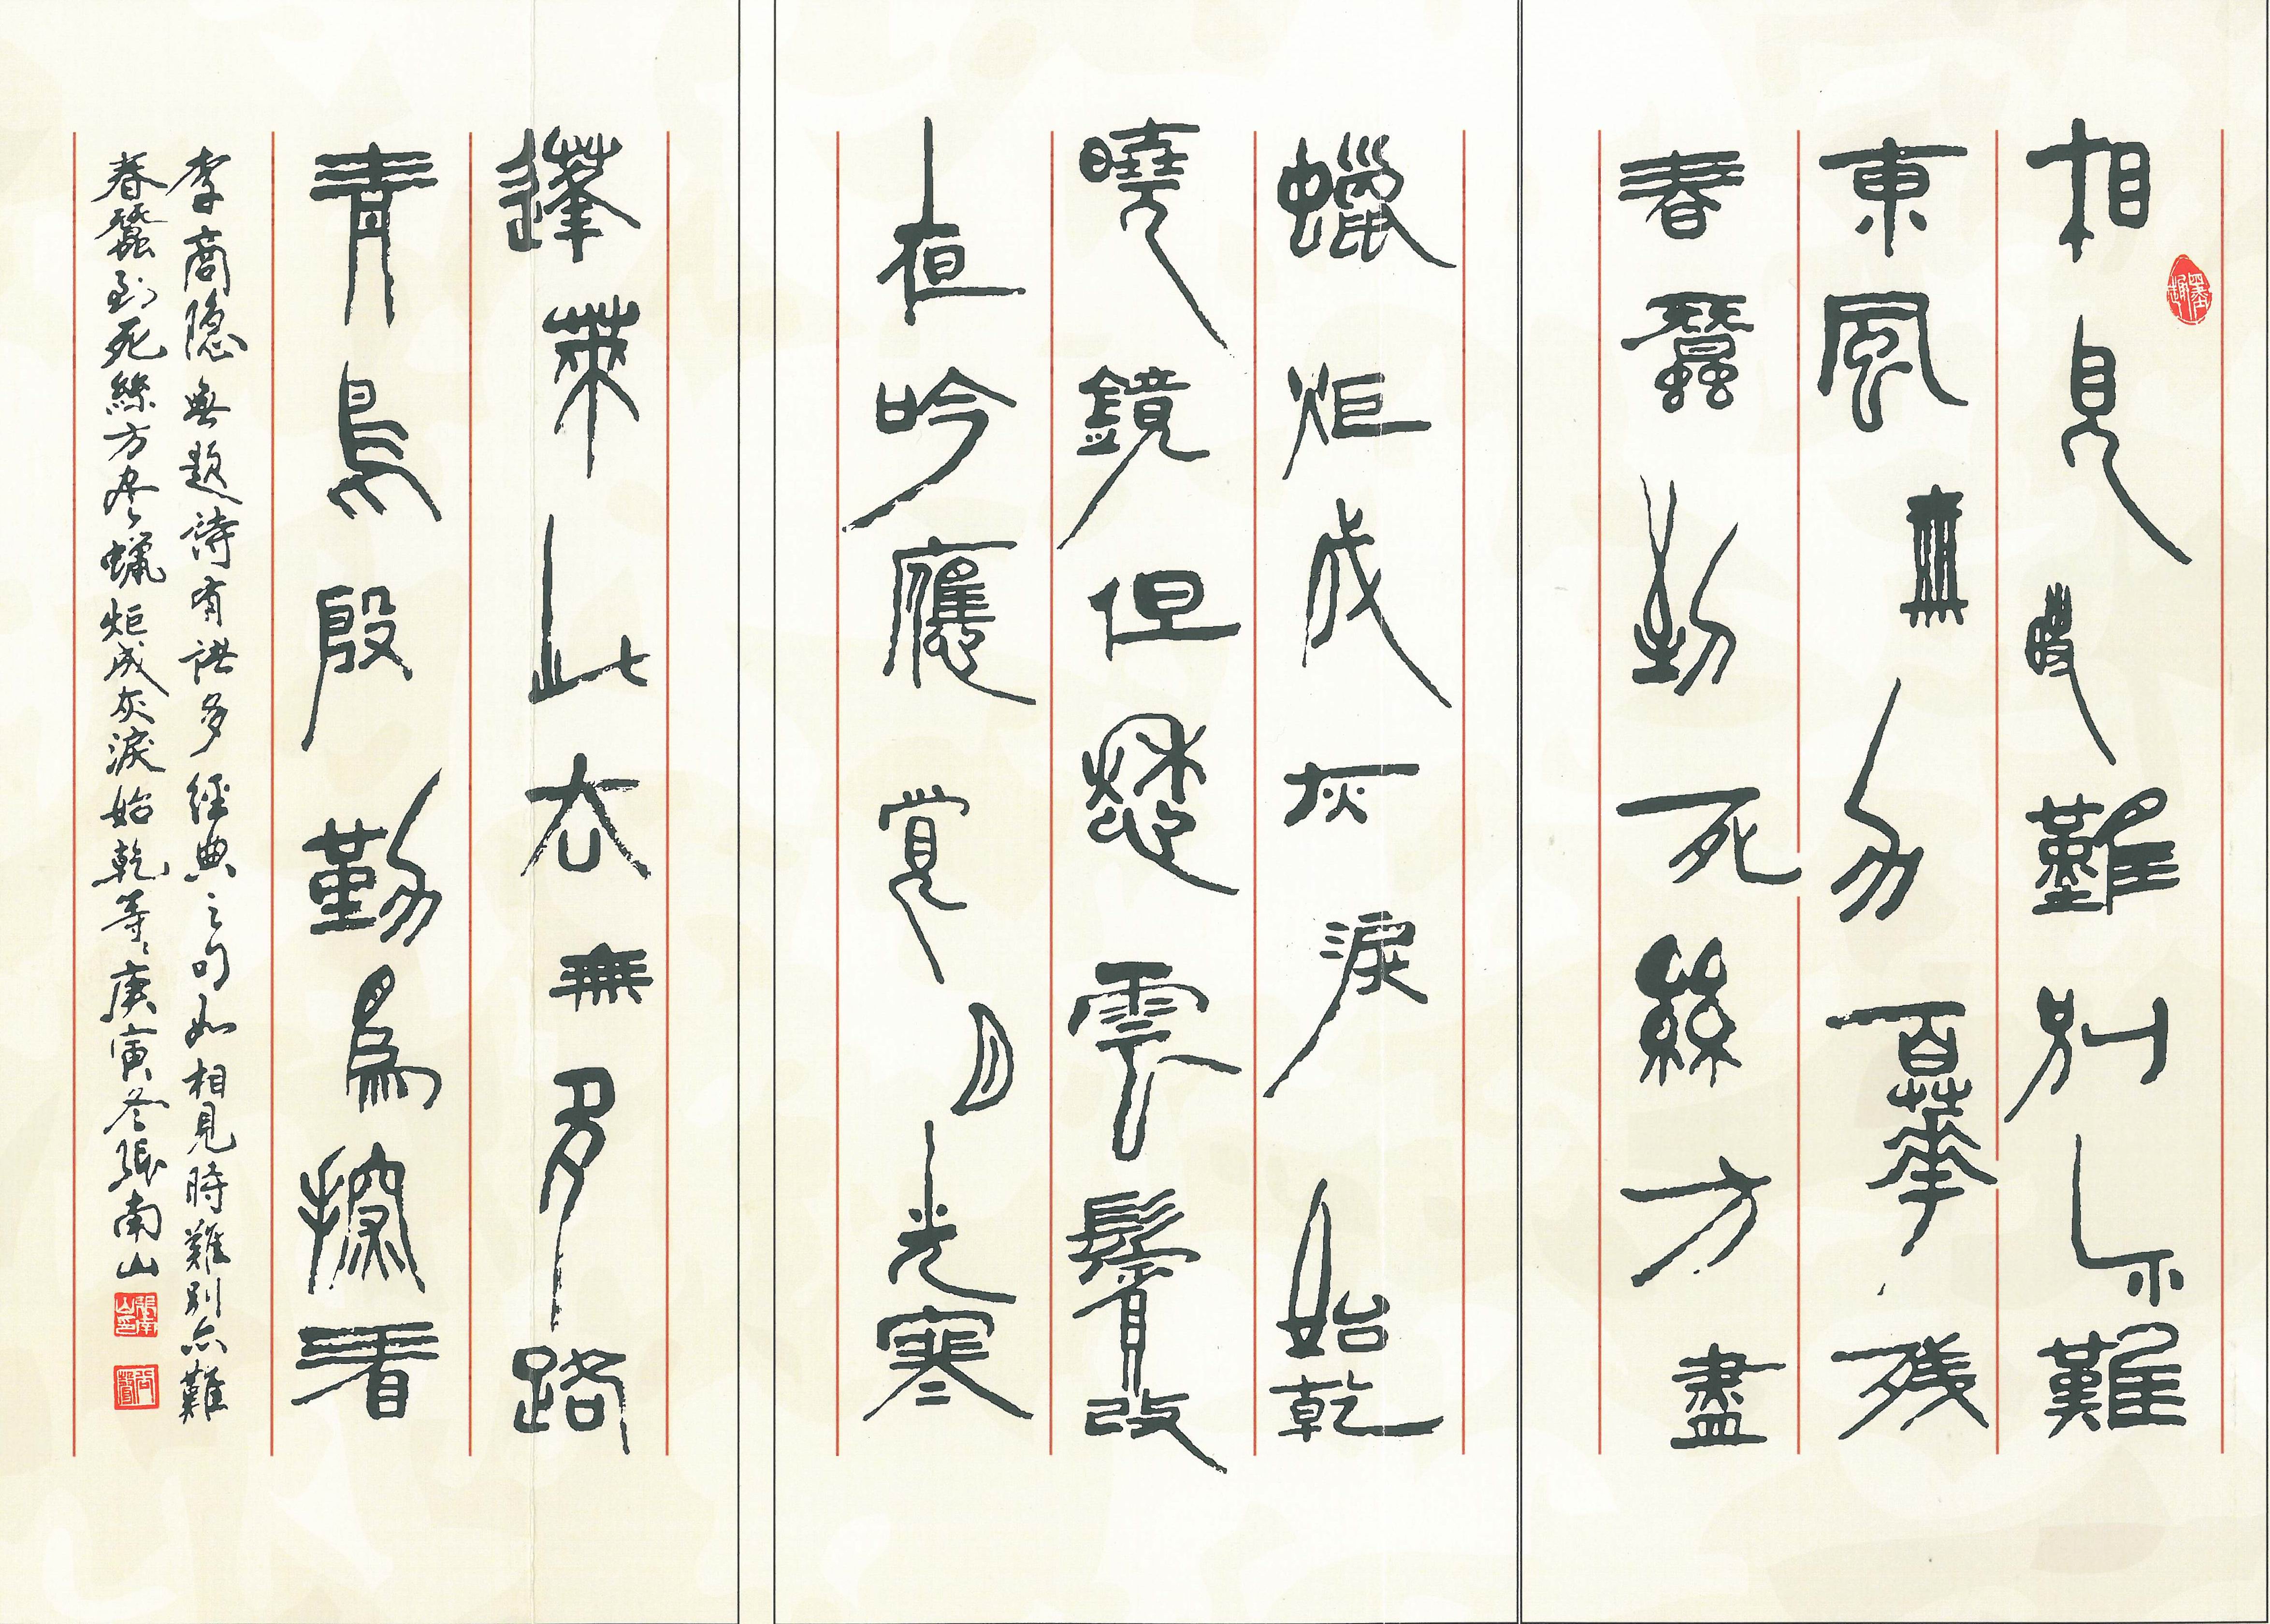 相見時難別亦難
東風無力百華殘
春蠶到死絲方盡
蠟炬成灰淚始乾
曉鏡但愁雲鬢改
夜吟應覺月光寒
蓬萊此去無多路
青鳥殷勤為探看
李商隐無题詩有諸多經典之句如相見時難別亦難
春蠶到死絲方尽蠟炬成灰淚始乾等等庚寅冬張南山
張南山印